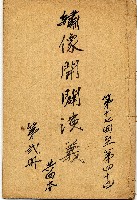 第十七回至第四十回
繡像開闢演義
第貳册
共四本